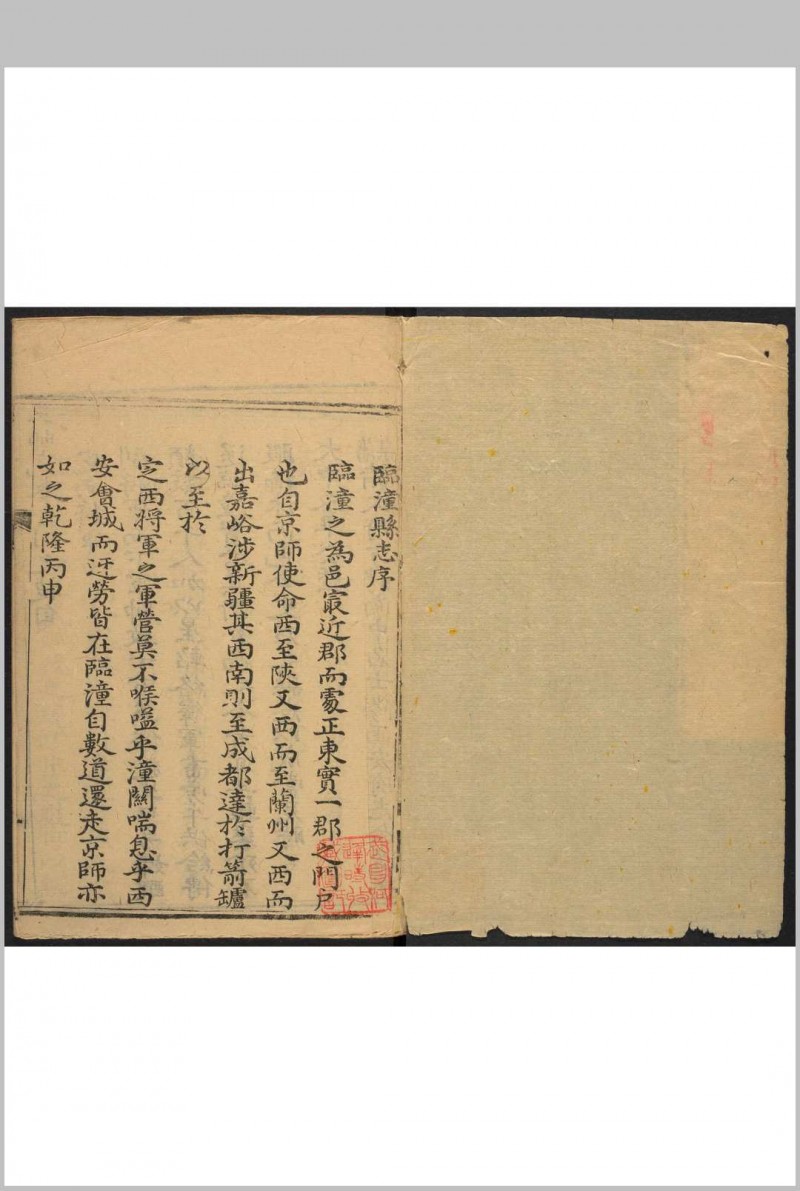 臨潼縣志序
臨潼之為邑㝡近郡而處正東實一郡之門户
也自京師使命西至陝又西而至蘭州又西而
出嘉峪涉新疆其西南則至成都達於打箭罏
以至於
定西將軍之軍營莫不喉嗌乎潼關喘息乎西
安會城而迓勞皆在臨潼自數道還走京師亦
如之乾隆丙申